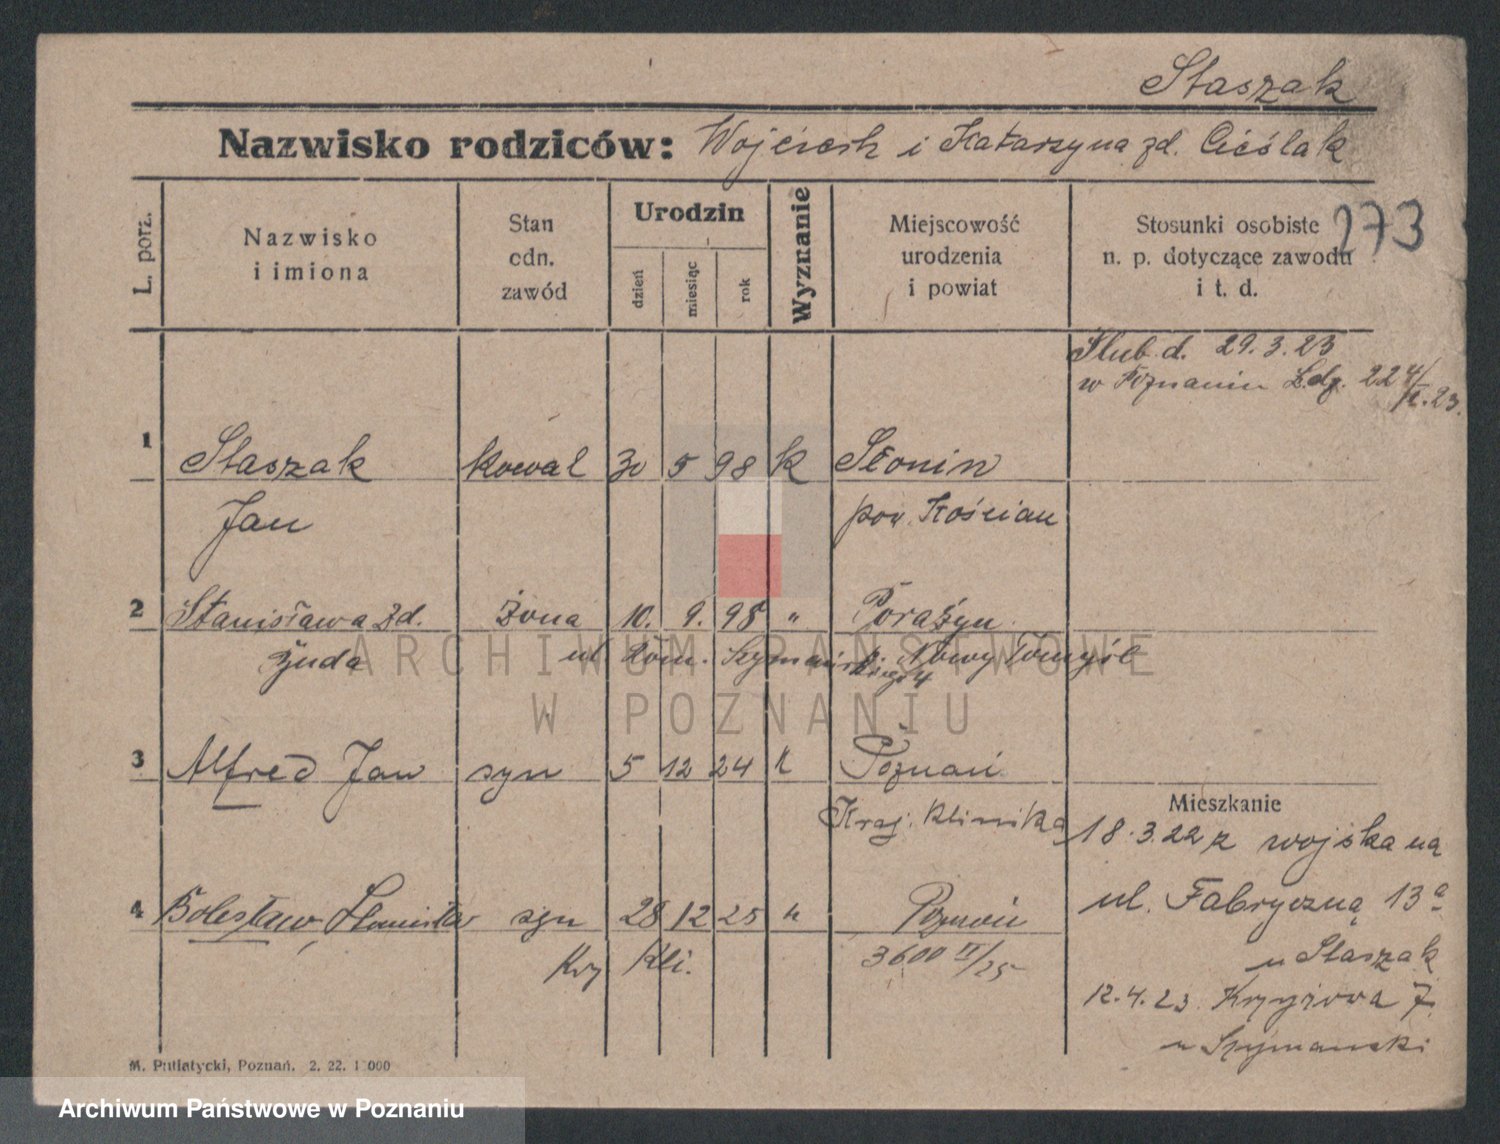 Staszak
Nazwisko rodziców: Wojciech i Katarzyna zd. Cieślak
L. porz.
Nazwisko i imiona
Stan odn. zawód
Urodzin
dzień
miesiąc
rok
Wyznanie
Miejscowość urodzenia i powiat
Stosunki osobiste n. p. dotyczące zawodu i t. d.
273
Ślub d. 29.3.23
w Poznaniu L.dz. 224/II.23.
1 Staszak kowal 30 5 98 k Słonin
Jan pow. Kościan
2 Stanisława zd. żona 10. 9. 98 " Porażyn
Żuda ul. Rom. Szymańskiego 4 p. Nowy Tomyśl
3 Alfred Jan syn 5 12 24 k Poznań
Kraj. Klinika
4 Bolesław, Stanisław syn 28 12 25 " Poznań
Kraj Kli. 3600 II/25
Mieszkanie
18.3.22 z wojska na
ul. Fabryczną 13a
u Staszak
12.4.23 Krzyżowa 7.
u Szymanski
M. Putiatycki, Poznań. 2. 22. 1000
ARCHIWUM PAŃSTWOWE
W POZNANIU
Archiwum Państwowe w Poznaniu